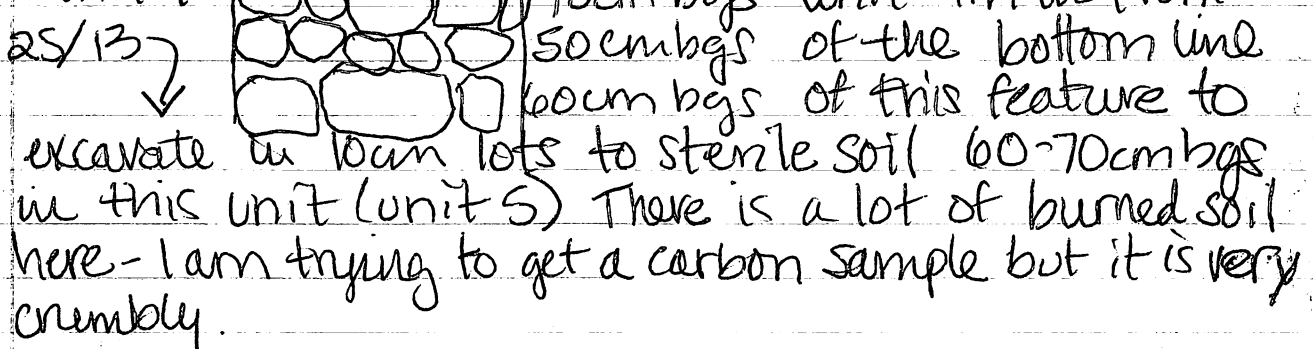 25/13 50cmbgs of the bottom line
60cm bgs of this feature to
excavate in 10cm lots to sterile soil 60-70cmbgs
in this unit (unit 5) There is a lot of burned soil
here - I am trying to get a carbon sample but it is very
crumbly.